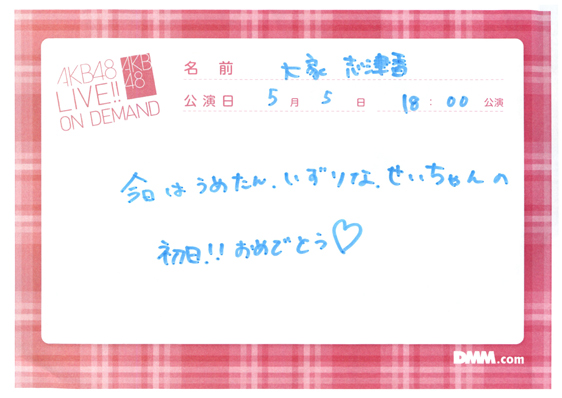 AKB48
LIVE!!
ON DEMAND
AKB
48
名前 大家 志津香
公演日 5月 5日 18:00 公演
今日は うめたん、いずりな、せいちゃんの
初日!! おめでとう♡
DMM.com